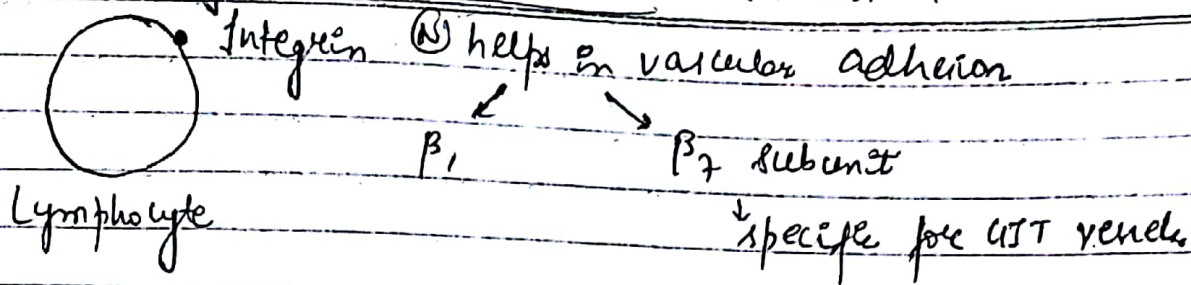 Integrin Ⓝ helps in vascular adhesion
↙ ↘
β₁ β₇ subunit
Lymphocyte
↓
specific for GIT vessels